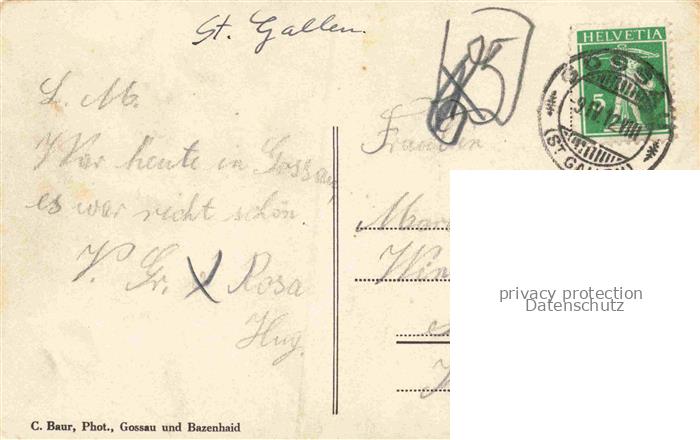 St. Gallen.
HELVETIA
5
GOSSAU
-9.IV.12.VIII
(ST. GALLEN)
L. M.
War heute in Gossau,
es war recht schön.
V. Gr. v Rosa
Hug.
Fräulein
privacy protection
Datenschutz
C. Baur, Phot., Gossau und Bazenhaid